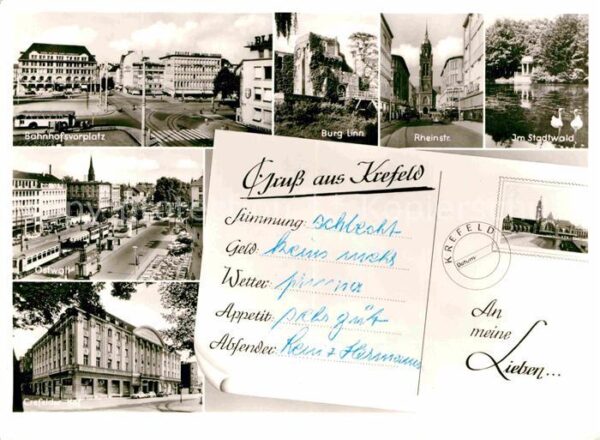 Bahnhofsvorplatz
Burg Linn
Rheinstr.
Im Stadtwald
Ostwall
Crefelder Hof
Gruß aus Krefeld
Stimmung: schlecht
Geld: keins mehr
Wetter:
Appetit: sehr gut
Absender: Heinz Hermanns
KREFELD
Datum:
An
meine
Lieben...